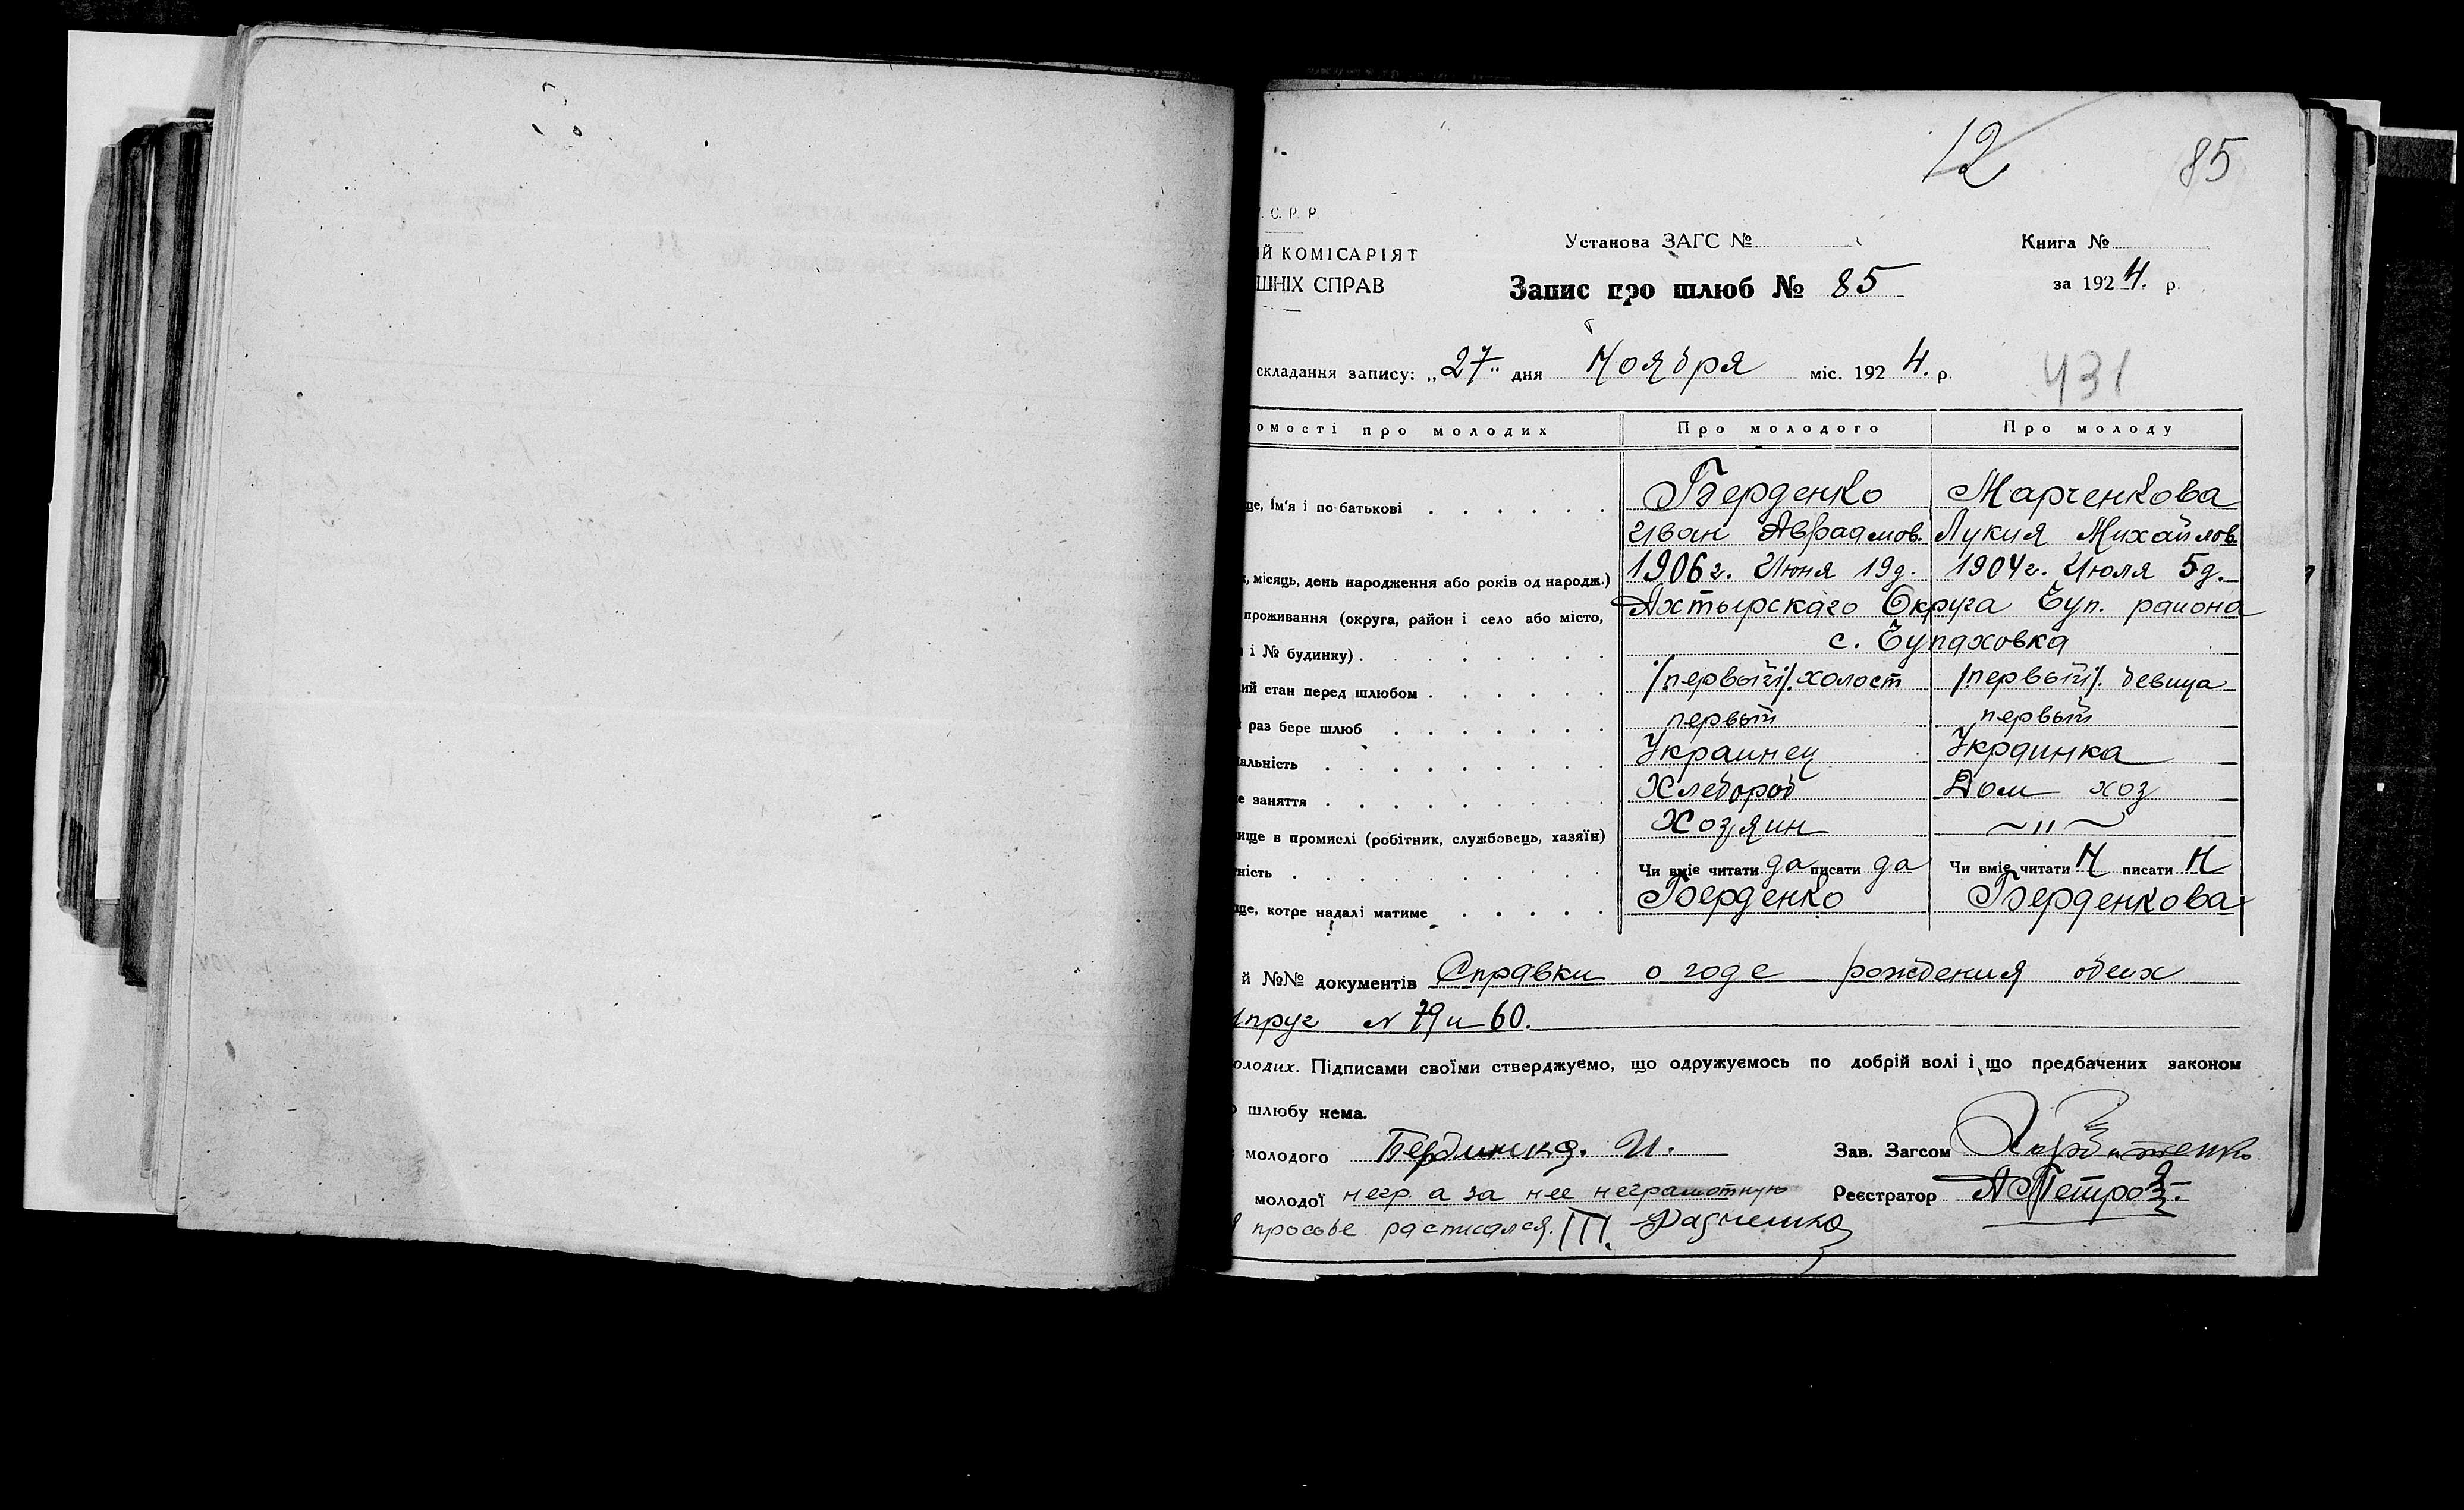 12
85
. С. Р. Р.
ИЙ КОМІСАРІЯТ
Установа ЗАГС №
Книга №
ШНІХ СПРАВ
Запис про шлюб № 85
за 1924. р.
складання запису: „27" дня Ноября міс. 1924. р.
431
омості про молодих
Про молодого
Про молоду
ще, ім'я і по-батькові
Берденко
Марченкова
Иван Авраамов.
Лукия Михайлов
, місяць, день народження або років од народж.)
1906 г. Июня 19 д.
1904 г. Июля 5 д.
проживання (округа, район і село або місто,
Ахтырскаго Округа Чуп. района
і № будинку)
с. Чупаховка
ий стан перед шлюбом
/первый/. холост
/первый/. девица
раз бере шлюб
первый
первый
альність
Украинец
Украинка
е заняття
Хлебороб
Дом хоз
ище в промислі (робітник, службовець, хазяїн)
Хозяин
~ „ ~
ність
Чи вміє читати да писати да
Чи вміє читати Н писати Н
ще, котре надалі матиме
Берденко
Берденкова
й №№ документів Справки о годе рождения обеих
пруг N 79 и 60.
олодих. Підписами своїми стверджуємо, що одружуємось по добрій волі і що предбачених законом
шлюбу нема.
молодого
И.
Зав. Загсом
молодої негр. а за нее неграмотную
Реєстратор А Петро
просьбе расписался. Радченко